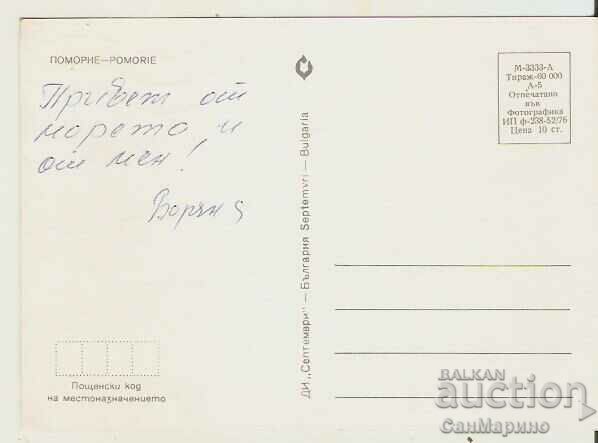 ПОМОРИЕ—POMORIE
Привет от
морето и
от мен!
ДИ „Септември" — България Septemvri — Bulgaria
М-3333-А
Тираж-60 000
А-5
Отпечатано
във
Фотографика
ИП ф-238-52/76
Цена 10 ст.
Пощенски код
на местоназначението
BALKAN
auction
СанМарино